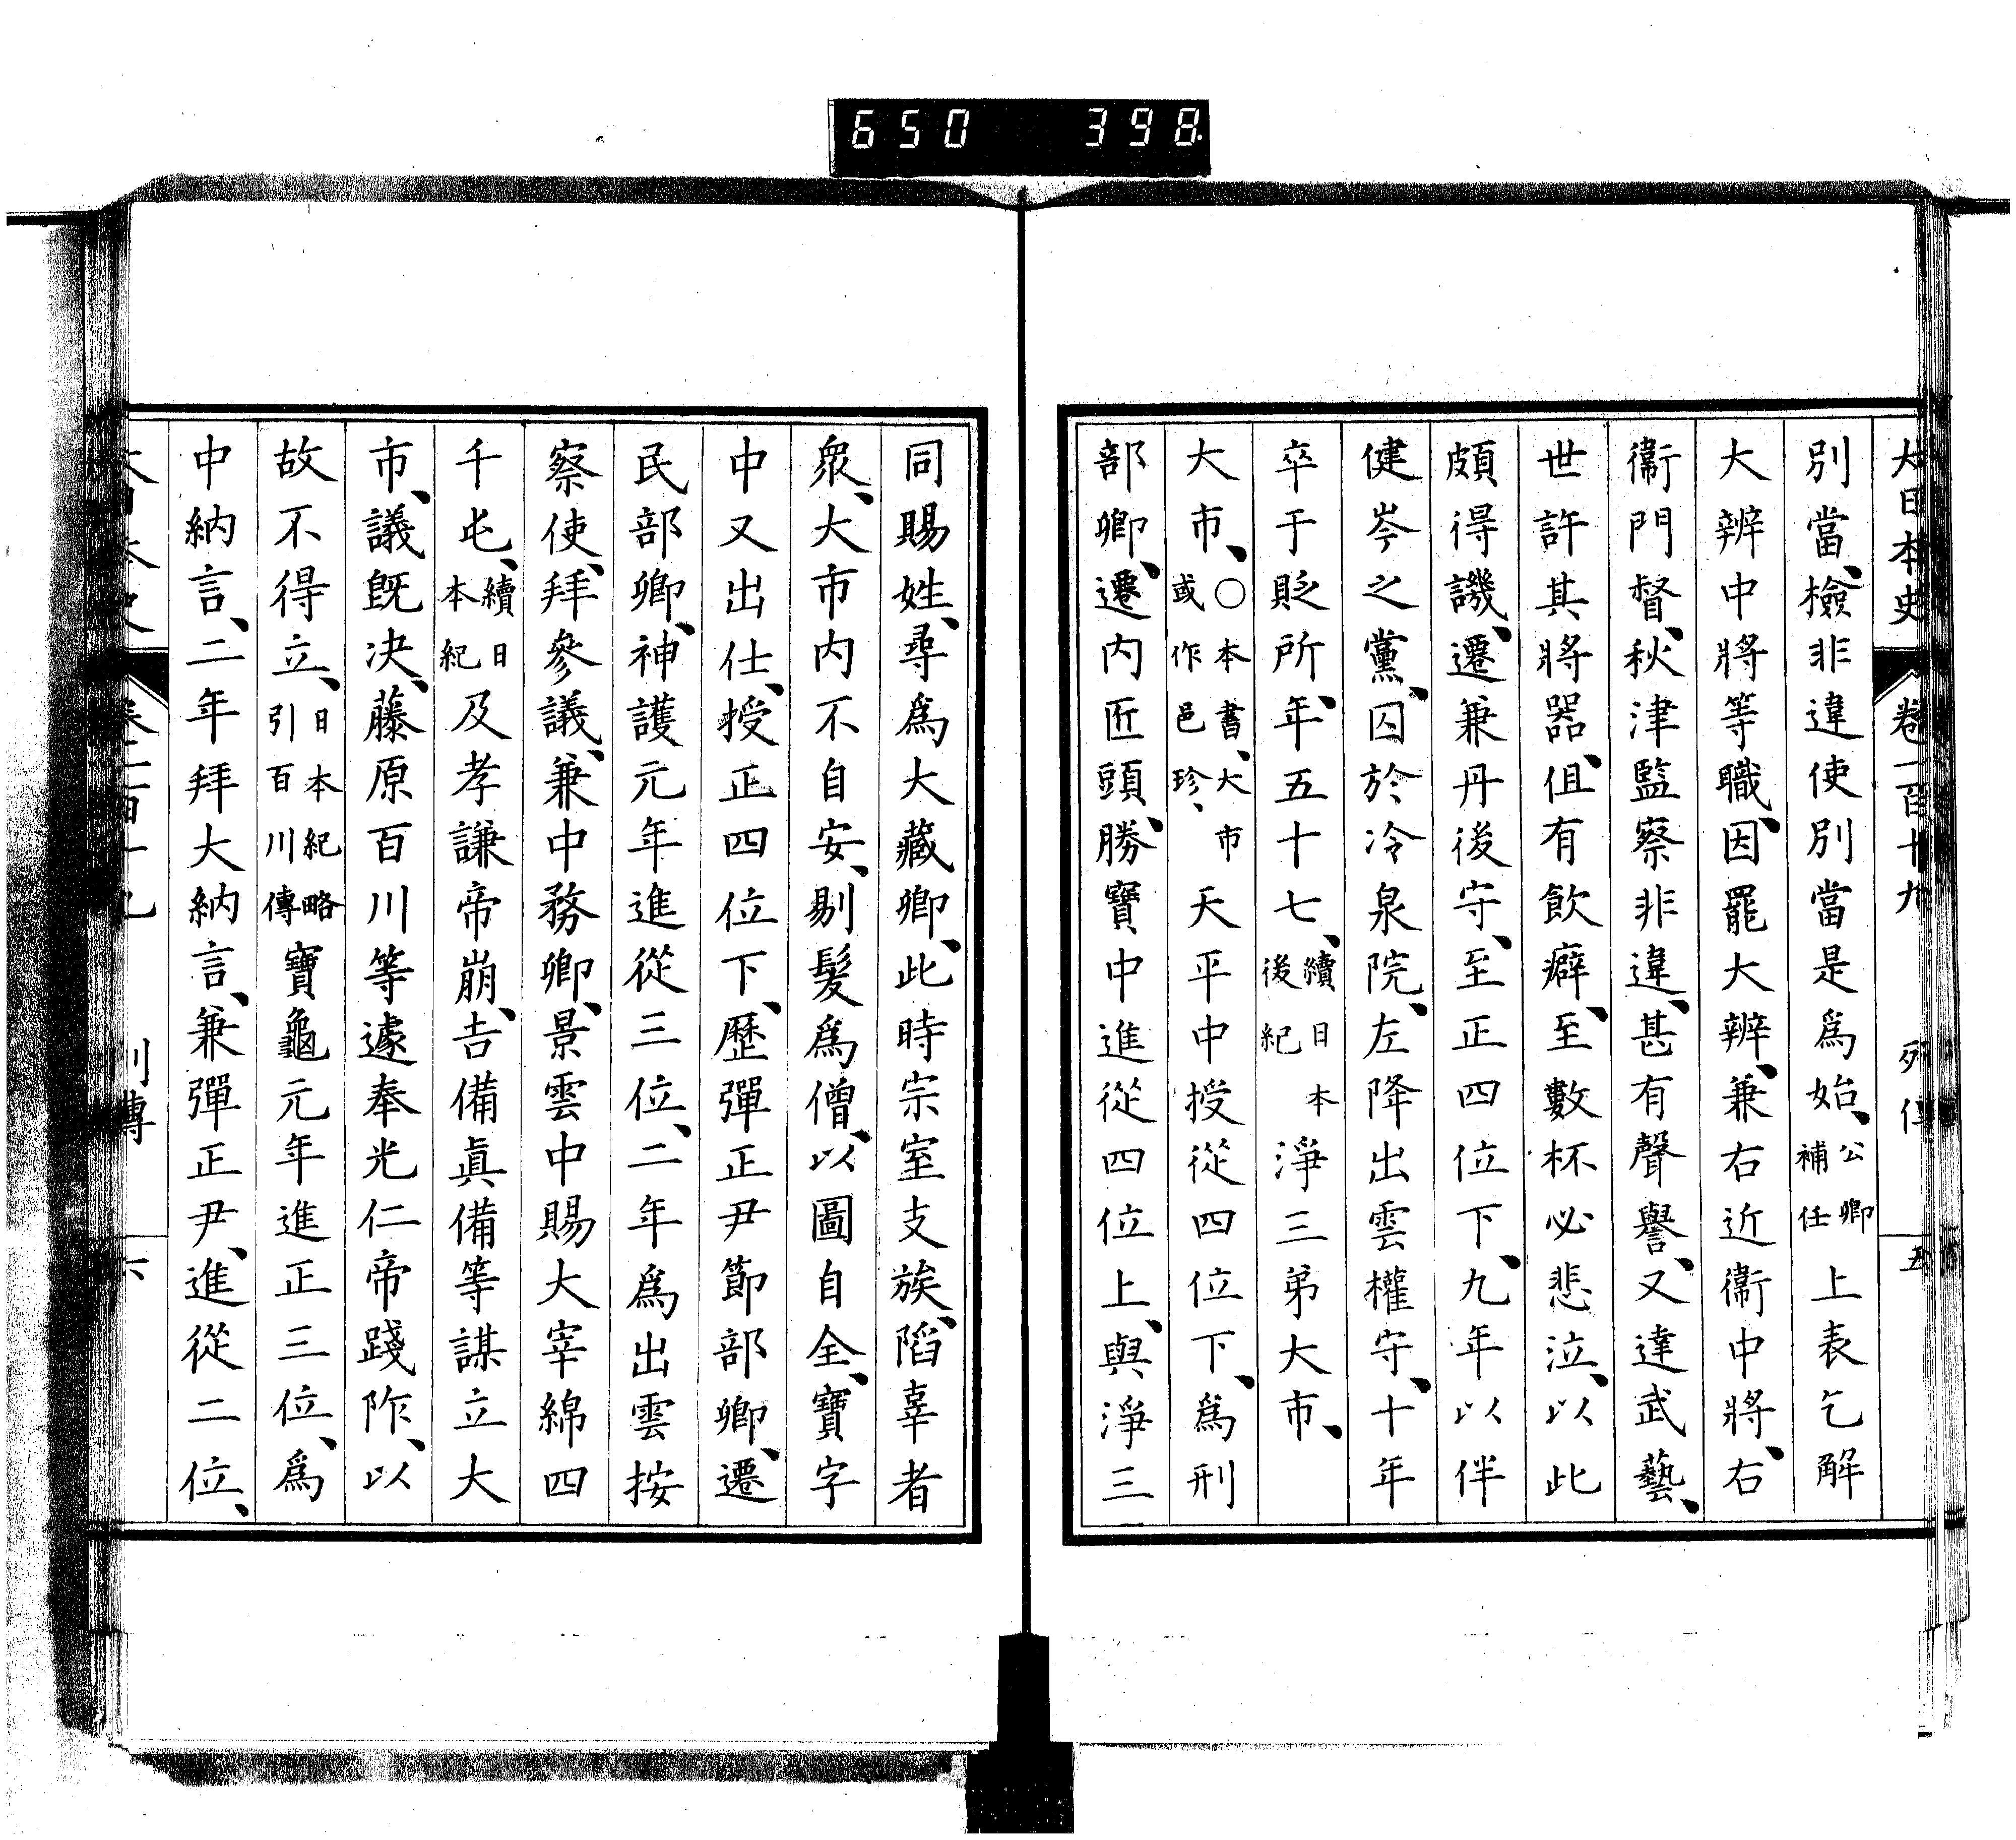 650 398
大日本史 卷一百十九 列傳 五
別當、檢非違使別當是爲始、公卿補任上表乞解
大辨中將等職、因罷大辨、兼右近衞中將、右
衞門督、秋津監察非違、甚有聲譽、又達武藝、
世許其將器、伹有飮癖、至數杯必悲泣、以此
頗得譏、遷兼丹後守、至正四位下、九年以伴
健岑之黨、囚於冷泉院、左降出雲權守、十年
卒于貶所、年五十七、續日本後紀淨三弟大市、
大市、○本書、大市或作邑珍、天平中授從四位下、爲刑
部卿、遷內匠頭、勝寶中進從四位上、與淨三
同賜姓、尋爲大藏卿、此時宗室支族、陷辜者
衆、大市內不自安、剔髮爲僧、以圖自全、寶字
中又出仕、授正四位下、歷彈正尹節部卿、遷
民部卿、神護元年進從三位、二年爲出雲按
察使、拜參議、兼中務卿、景雲中賜大宰綿四
千屯、續日本紀及孝謙帝崩、吉備眞備等謀立大
市、議旣決、藤原百川等遽奉光仁帝踐阼、以
故不得立、日本紀略引百川傳寶龜元年進正三位、爲
中納言、二年拜大納言、兼彈正尹、進從二位、
大日本史 卷一百十九 列傳 六